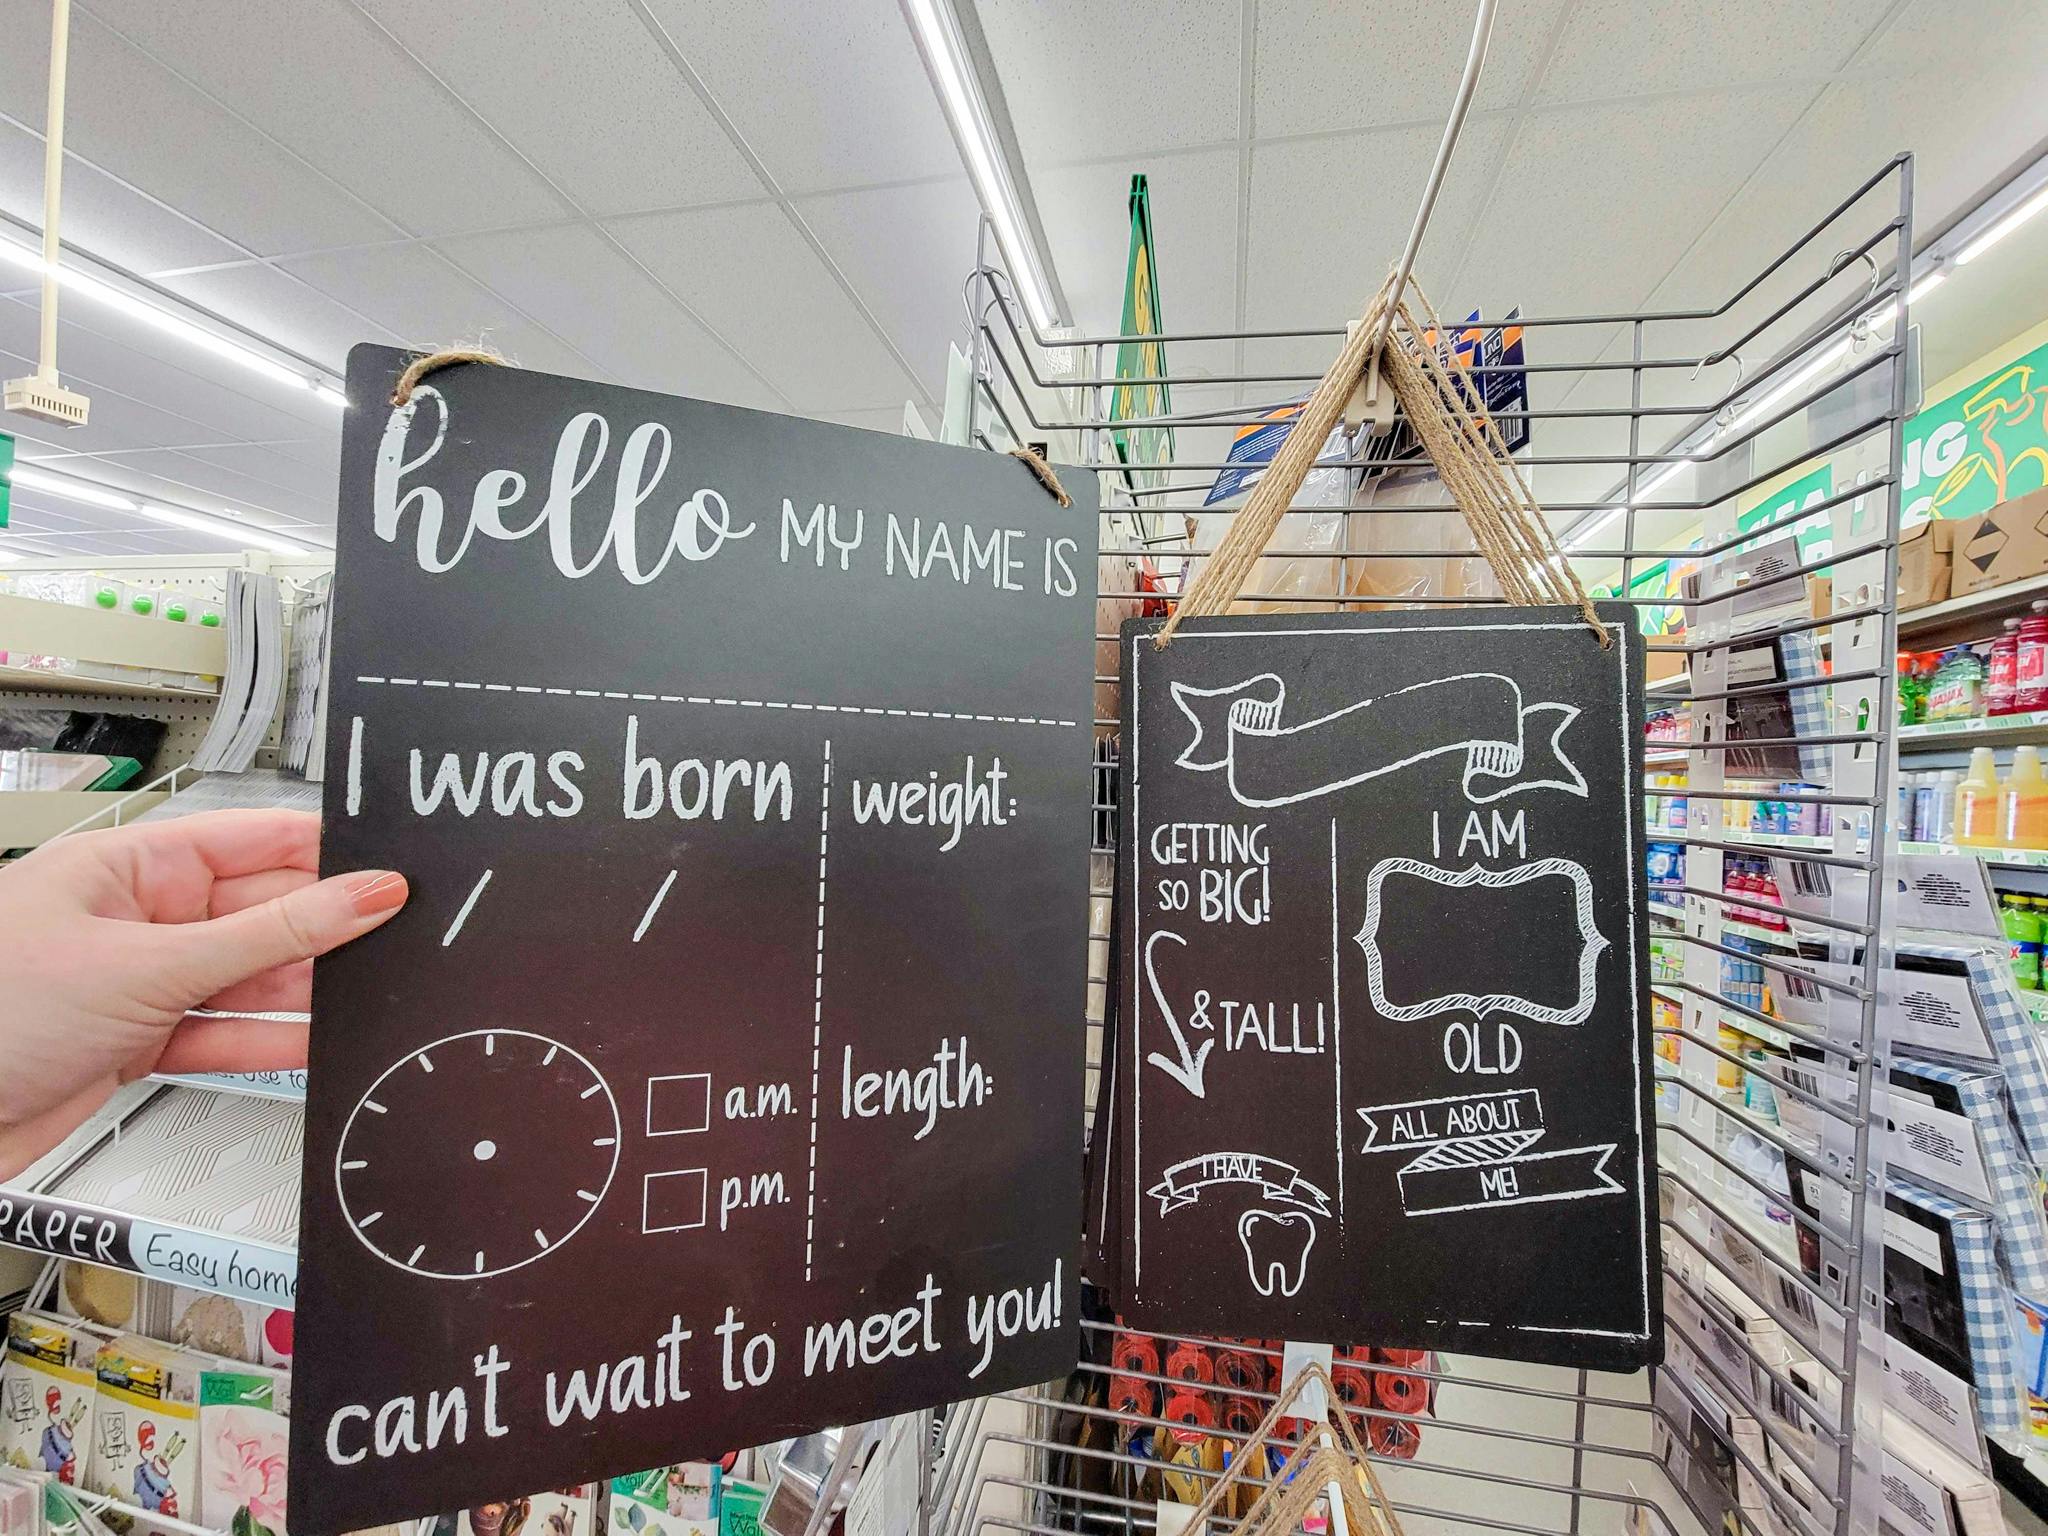 hello MY NAME IS
I was born
weight:
/ /
a.m.
p.m.
length:
can't wait to meet you!
GETTING
SO BIG!
& TALL!
I HAVE
I AM
OLD
ALL ABOUT
ME!
PAPER
Easy home